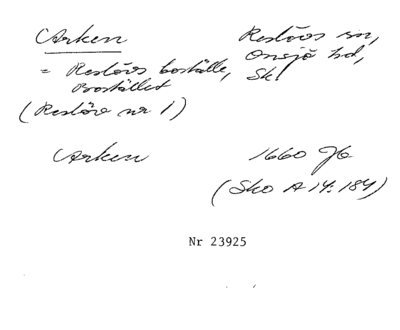 Arken
Reslövs sn,
Onsjö hd,
Sk
= Reslövs boställe,
Bostället
(Reslöv nr 1)
Arken 1660 Jb
(Sko A 14: 184)
Nr 23925